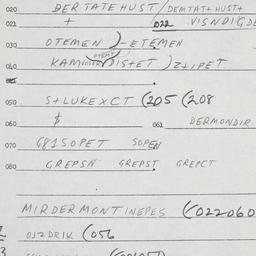 020 DERTATEHUST / DEMTAT+HUST+
021 + 022 VISNDIGDE
030 OTEMEN )-ETEMEN
040 )Z+IPET
050 S+LUKEXCT (205 (208
060 $ 061 DERMONDIR
070 G81SOPET SOPEN
080 GREPSN GREPST GREPCT
MIRDERMONTINEPES (022060
OJZDRIK (056